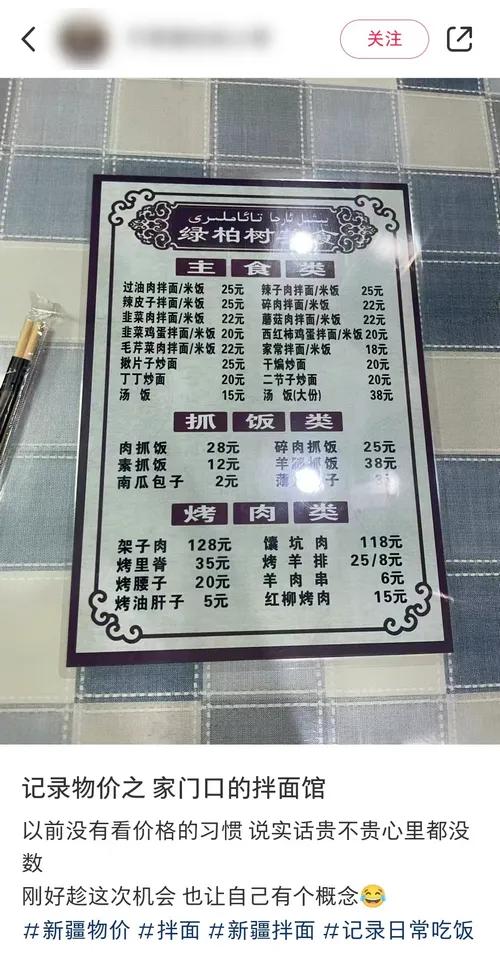 关注
绿柏树
主食类
过油肉拌面/米饭 25元 辣子肉拌面/米饭 25元
辣皮子拌面/米饭 25元 碎肉拌面/米饭 22元
韭菜肉拌面/米饭 22元 蘑菇肉拌面/米饭 22元
韭菜鸡蛋拌面/米饭 20元 西红柿鸡蛋拌面/米饭 20元
毛芹菜肉拌面/米饭 22元 家常拌面/米饭 18元
揪片子炒面 25元 干煸炒面 20元
丁丁炒面 20元 二节子炒面 20元
汤饭 15元 汤饭(大份) 38元
抓饭类
肉抓饭 28元 碎肉抓饭 25元
素抓饭 12元 抓饭 38元
南瓜包子 2元
烤肉类
架子肉 128元 馕坑肉 118元
烤里脊 35元 烤羊排 25/8元
烤腰子 20元 羊肉串 6元
烤油肝子 5元 红柳烤肉 15元
记录物价之 家门口的拌面馆
以前没有看价格的习惯 说实话贵不贵心里都没
数
刚好趁这次机会 也让自己有个概念😂
#新疆物价 #拌面 #新疆拌面 #记录日常吃饭